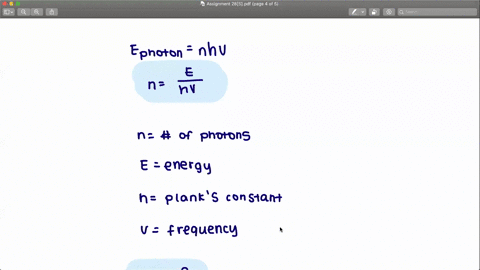 Assignment 26(5).pdf (page 4 of 5)
Ephoton = nhv
n = E
hv
n= # of photons
E = energy
h= plank's constant
v = frequency